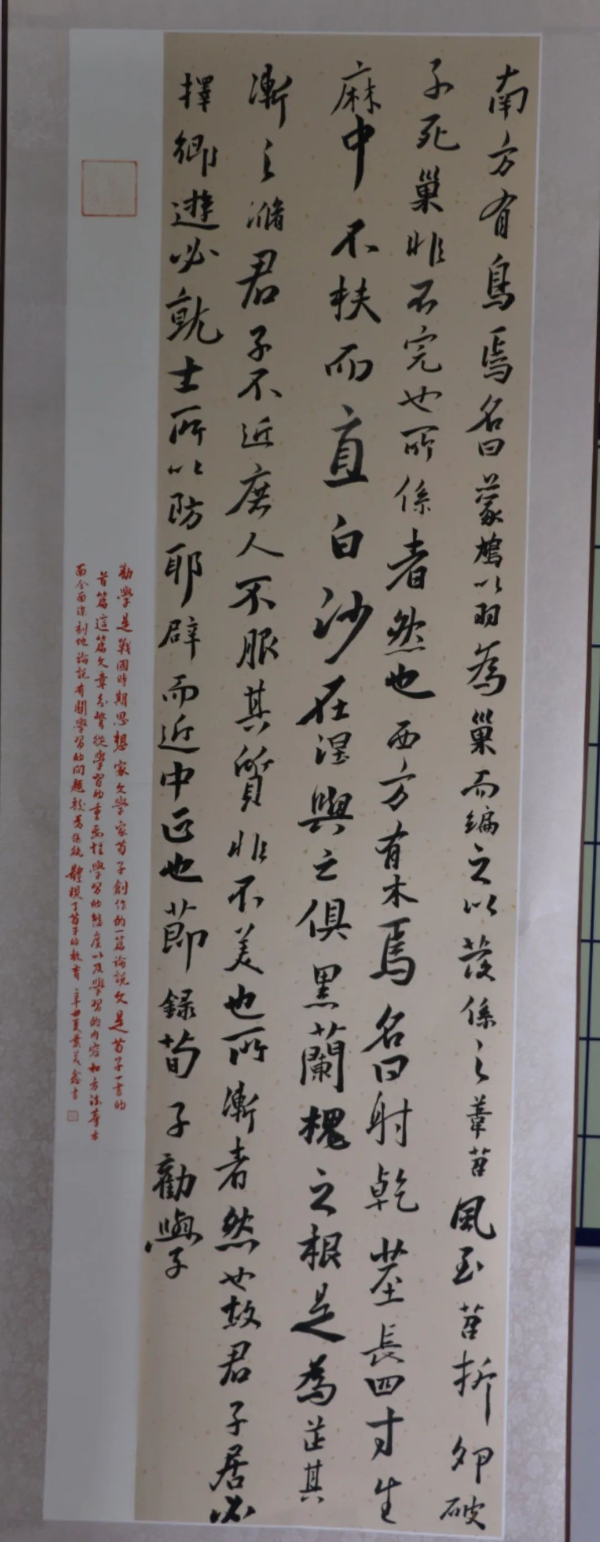 南方有鳥焉名曰蒙鳩以羽為巢而編之以髮係之葦苕風至苕折卵破
子死巢非不完也所係者然也西方有木焉名曰射乾莖長四寸生
麻中不扶而直白沙在涅與之俱黑蘭槐之根是為芷其
漸之滫君子不近庶人不服其質非不美也所漸者然也故君子居必
擇鄉遊必就士所以防邪辟而近中正也節錄荀子勸學
勸學是戰國時期思想家文學家荀子創作的一篇論說文是荀子一書的
首篇這篇文章分別從學習的重要性學習的態度以及學習的內容和方法等方
面全面深刻地論說有關學習的問題較為係統體現了荀子的教育辛丑夏書